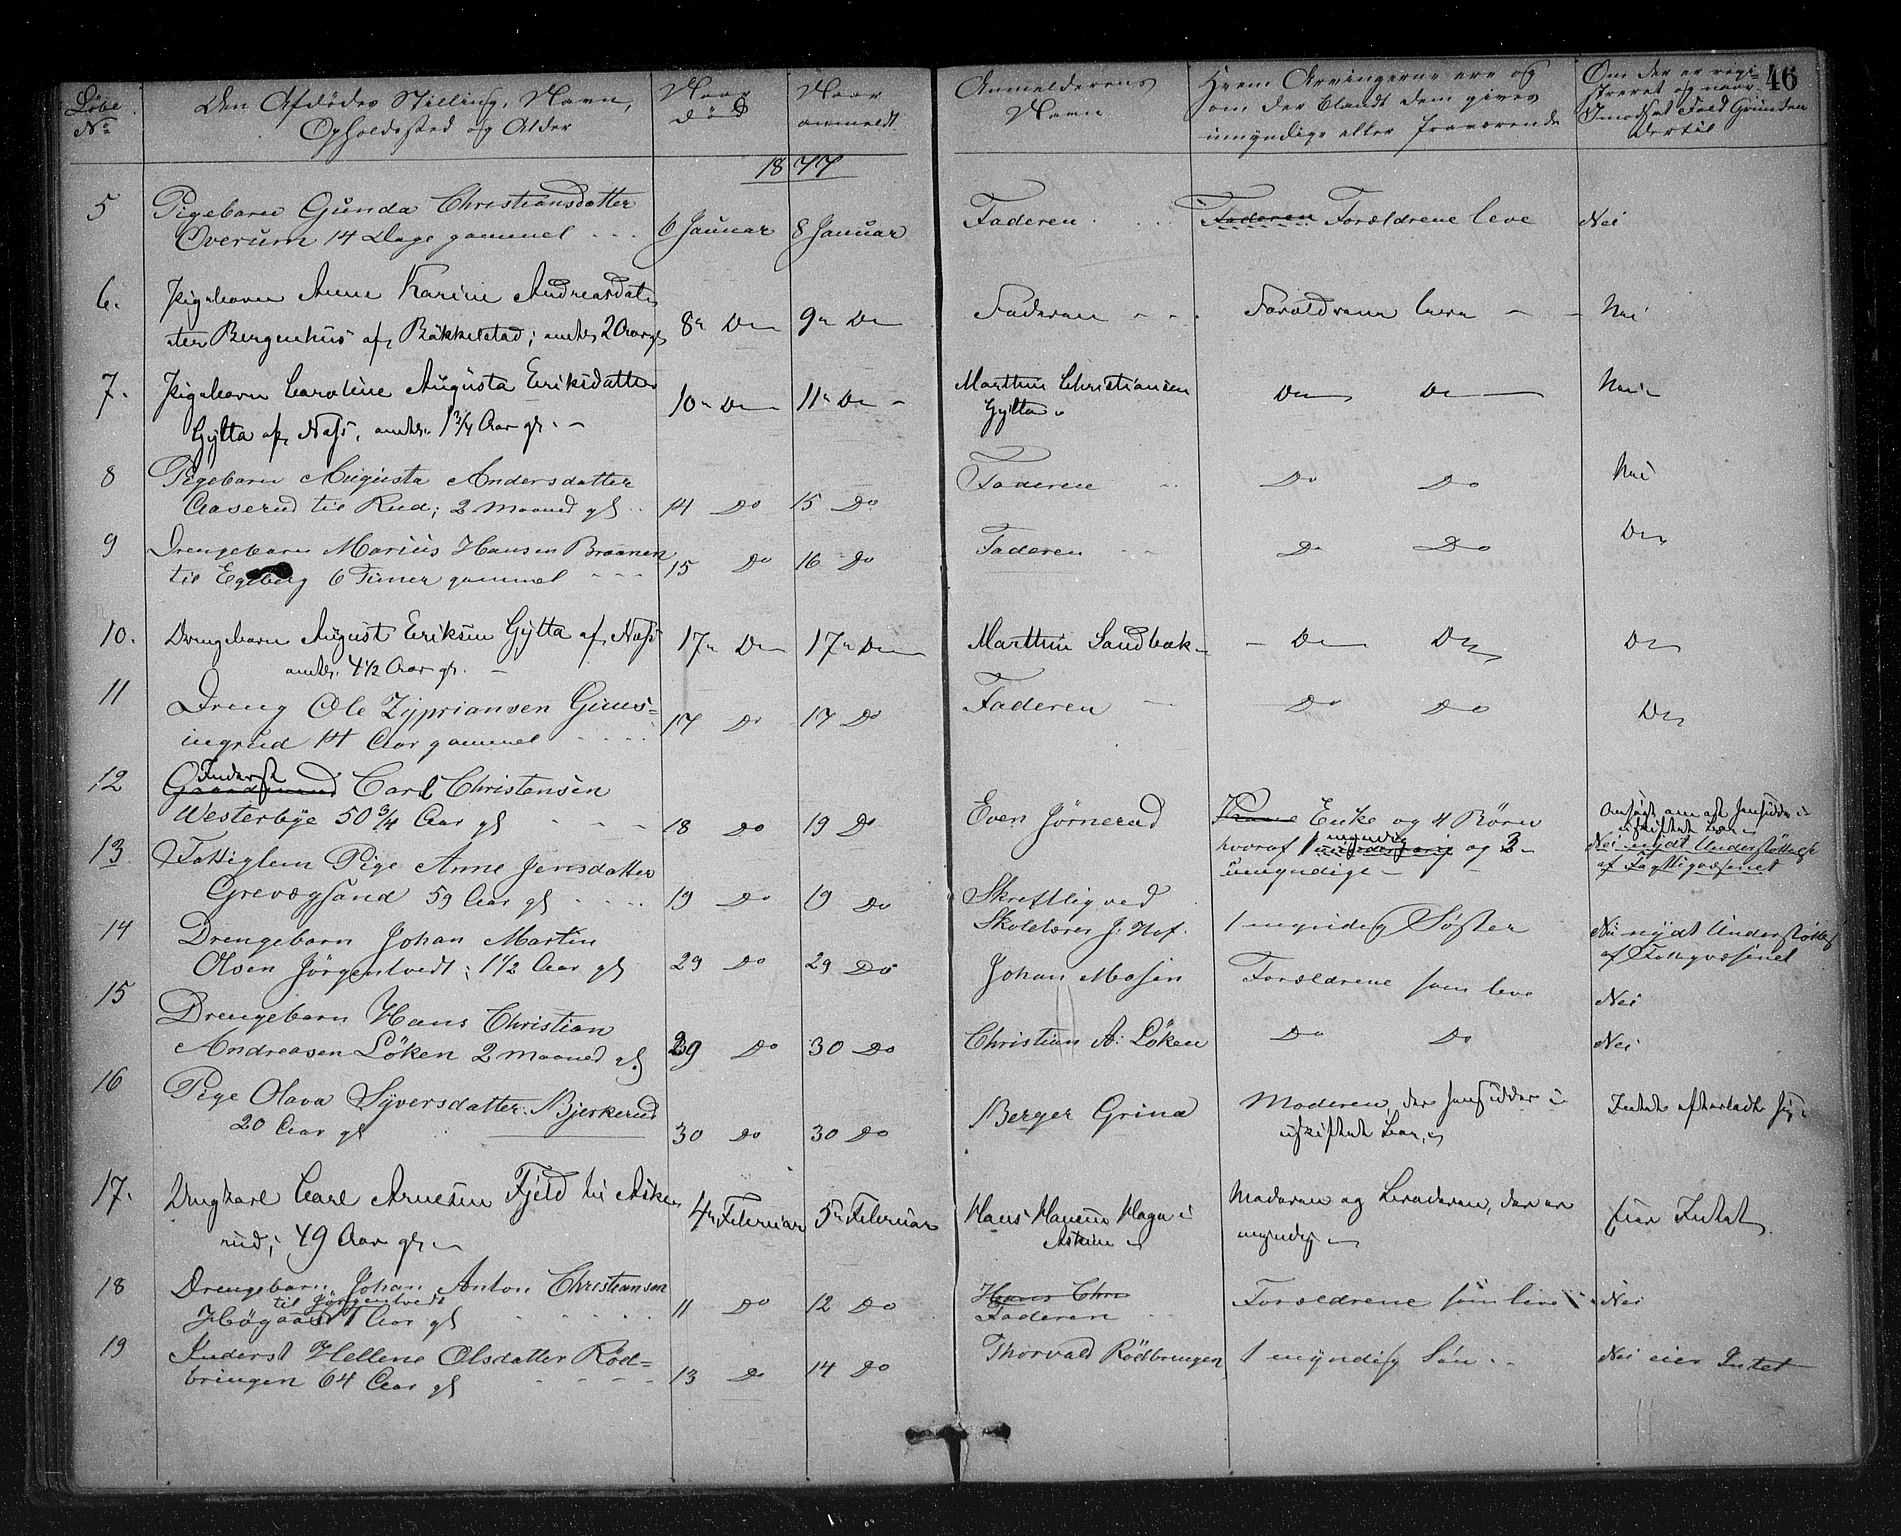 46
Löbe No
Den Afdödes Stilling, Navn, Opholdssted og Alder
Naar död
Naar anmeldt
Anmelderens Navn
Hvem Arvingerne ere og om der blandt dem gives umyndige eller fraværende
Om der er regi-streret og naar. I modsat Fald Grunden dertil
1877
5 Pigebarn Gunda Christiansdatter 
Overum 14 Dage gammel 6 Januar 8 Januar Faderen Faderen Forældrene leve Nei
6. Pigebarn Anne Karine Andreasdat-
ter Bergenhus af Bökkelstad; 2 Aar gl 8de Do 9de Do Faderen Forældrene leve Nei
7. Pigebarn Caroline Augusta Eriksdatter 10de Do 11te Do Marthin Christiansen Do Do Nei
Gylta af Næss, 1 3/4 Aar gl. Gylta
8 Pigebarn Augusta Andersdatter 
Aaserud til Rud; 2 maaned gl 14 Do 15 Do Faderen Do Do Nei
9 Drengebarn Marius Hansen Braanen
til Egeberg 6 Timer gammel 15 Do 16 Do Faderen Do Do Do
10. Drengebarn August Eriksen Gylta af Næss 17de Do 17de Do Marthin Sandbæk Do Do Do
4 1/2 Aar gl.
11 Dreng Ole Zypriansen Gius-
ingrud 14 Aar gammel 17 Do 17 Do Faderen Do Do Do
12 Gaardmand Inderst Carl Christensen
Westerbye 50 3/4 Aar gl 18 Do 19 Do Even Jörnerud Kone Enke og 4 Börn
hvoraf 1 myndig og 3
umyndige
13 Fattiglem Pige Anne Jensdatter Nei nydt Understöttelse
af Fattigvæsenet
Grevægsand 59 Aar gl 19 Do 19 Do Skriftlig ved
Skolelærer J. Hof. 1 myndig Söster Nei nydt Understöttelse
af Fattigvæsenet
14 Drengebarn Johan Martin
Olsen Jörgentvedt; 1 1/2 Aar gl 29 Do 29 Do Johan Mosen Forældrene som leve Nei
15 Drengebarn Hans Christian
Andreasen Löken 2 maaned gl 29 Do 30 Do Christian A: Löken Do Do Nei
16 Pige Olava Syversdatter Bjerkerud
20 Aar gl 30 Do 30 Do Berger Grina Moderen, der hensidder i
uskiftet Bo Intet efterladt sig
17. Ungkarl Carl Arnesen Fjeld til Aske-
rud; 49 Aar gl. 4de Februar 5te Februar Hans Hansen Haga i
Askim Moderen og Broderen, der er
myndig Eier Intet
18 Drengebarn Johan Anton Christiansen
til Jörgentvedt
Högaas 1 Aar gl 11 Do 12 Do Hans Chr
Faderen Forældrene som leve Nei
19 Inderst Hellene Olsdatter Röd-
bringen 64 Aar gl 13 Do 14 Do Thorvald Rödbringen 1 myndig Sön Nei eier Intet